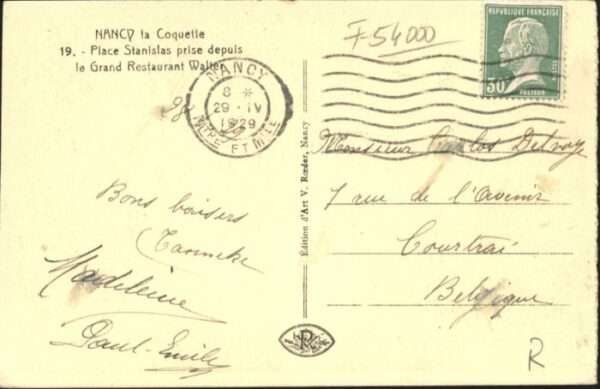 NANCY la Coquette
19. - Place Stanislas prise depuis
le Grand Restaurant Walter
NANCY
8 *
29 - IV
1929
MTHE ET MLLE
F54000
REPUBLIQUE FRANÇAISE
50c
PASTEUR
Bons baisers
Tanneke
Madeleine
Paul-Emile
Edition d'Art V. Rœder, Nancy
Monsieur Carlos Delvoye
7 rue de l'Avenir
Courtrai
Belgique
R